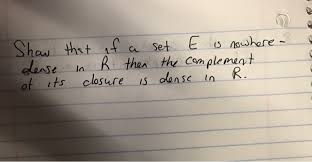 Show that if a set E is nowhere-
dense in R then the complement
of its closure is dense in R.